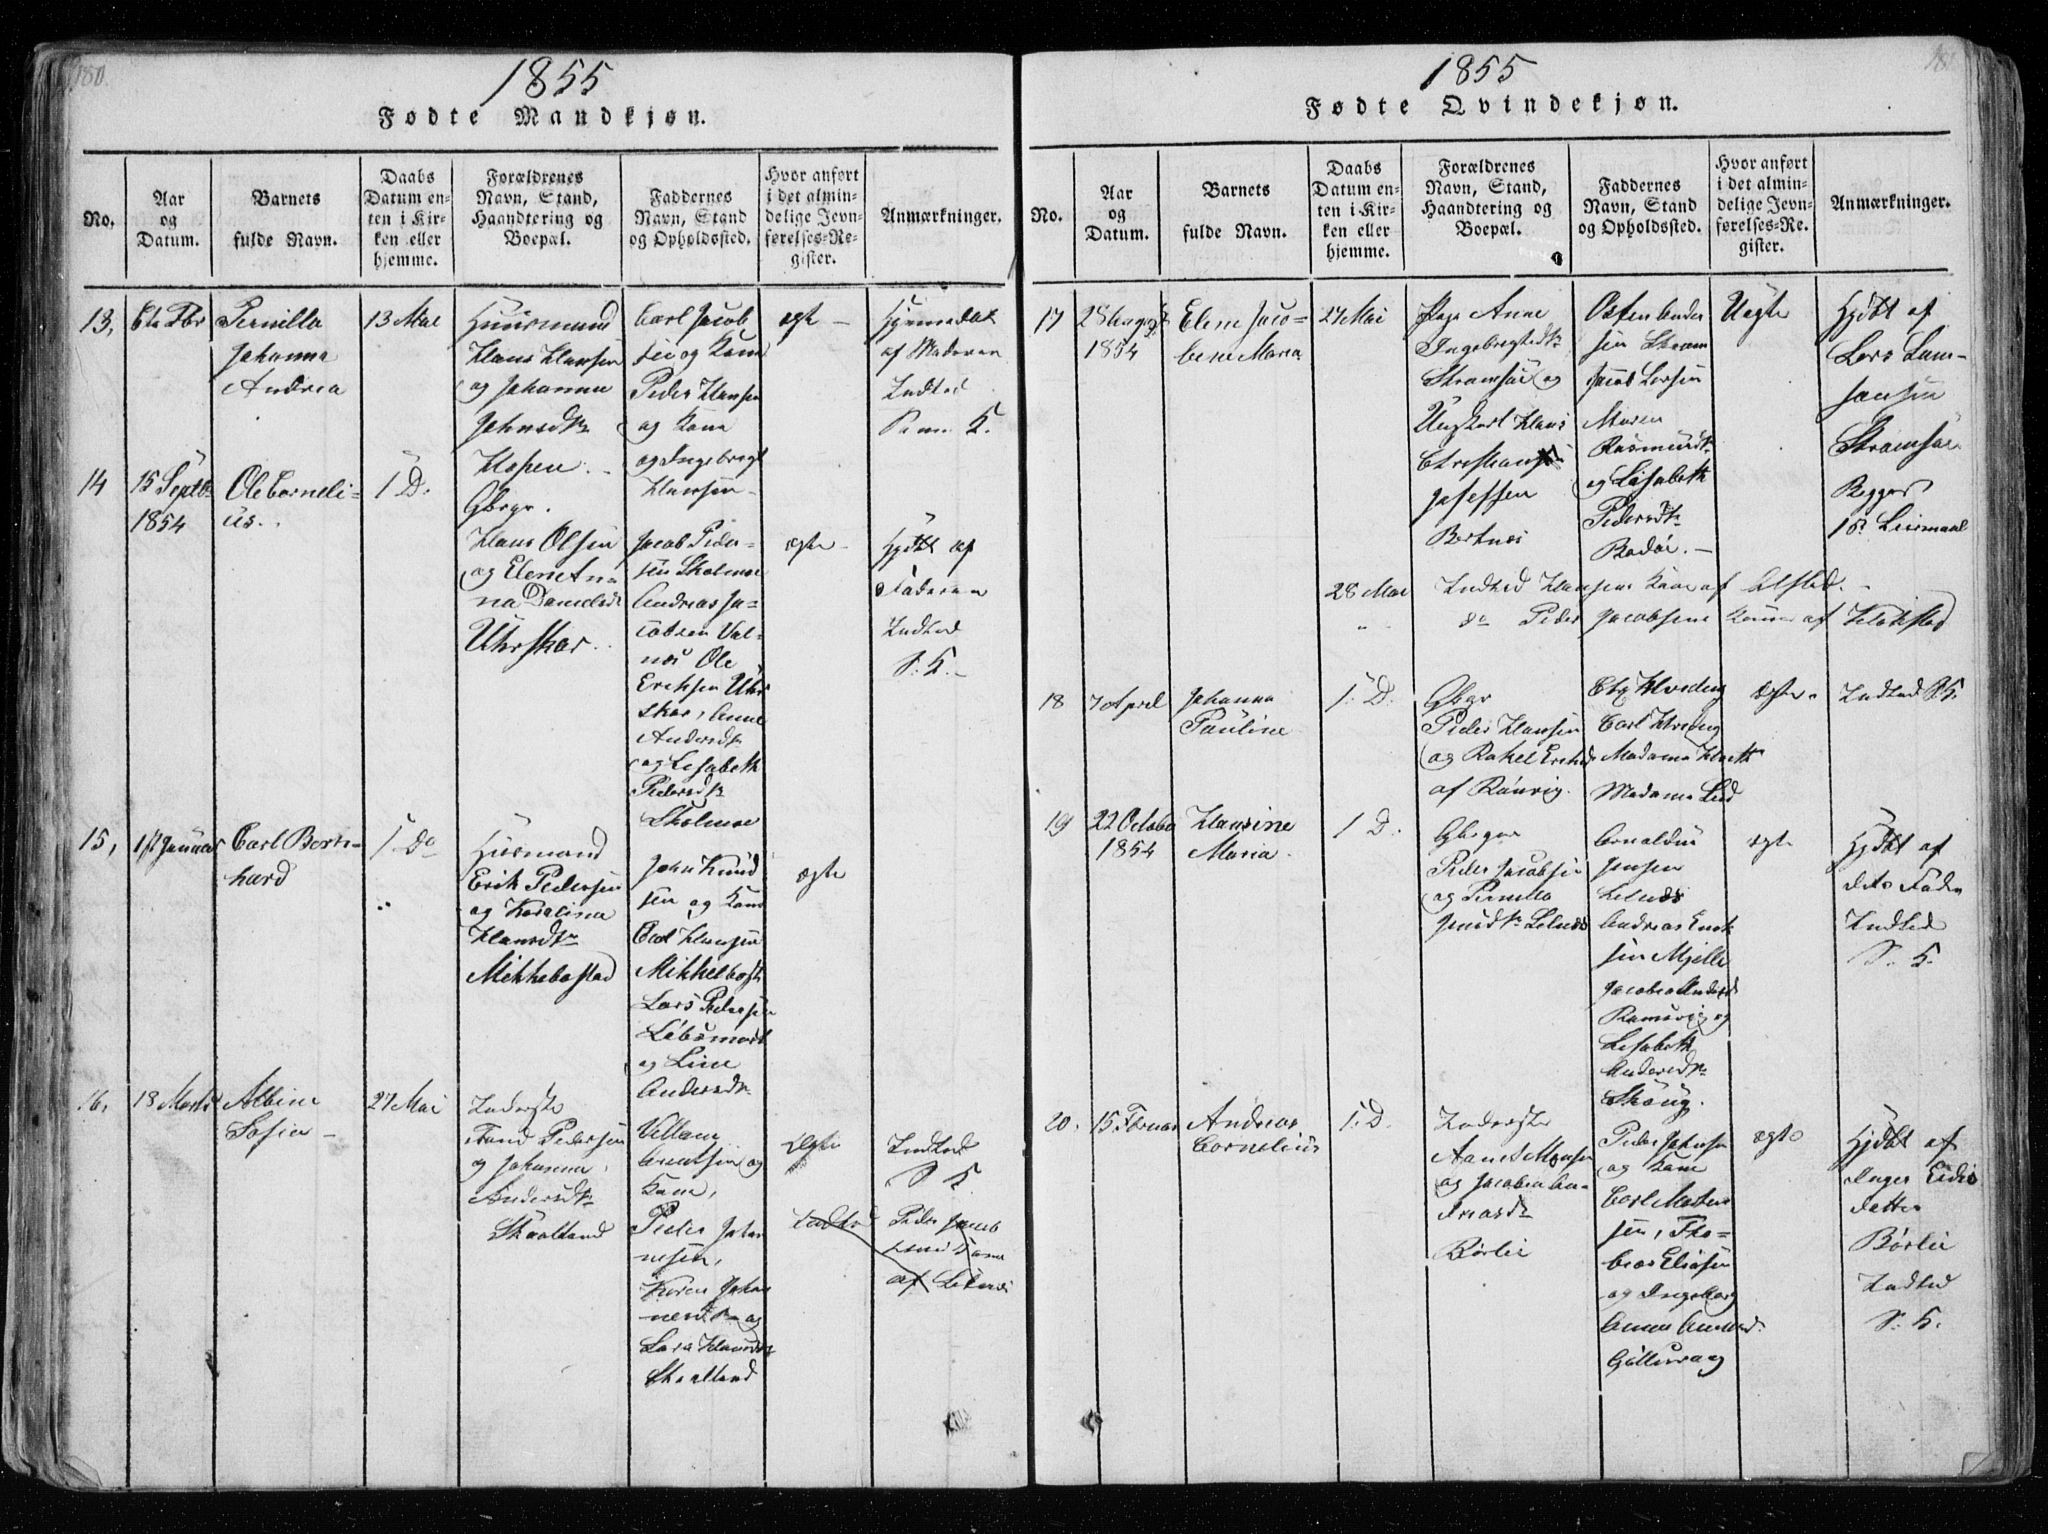 180.
1855
Fødte Mandkjøn.
No.
Aar
og
Datum.
Barnets
fulde Navn.
Daabs
Datum en-
ten i Kir-
ken eller
hjemme.
Forældrenes
Navn, Stand,
Haandtering og
Boepæl.
Faddernes
Navn, Stand
og Opholdssted.
Hvor anført
i det almin-
delige Jevn-
førelses-Re-
gister.
Anmærkninger.
13,
Pernilla
Johanna
Andrea
13 Mai
Huusmand
Hans Hansen
og Johanna
Johnsdtr
Hopen.
Carl Jacob
sen og Kone
Peder Hansen
og Kone
og Ingebregt
Hansen
ægte
Hjemmedøbt
af Moderen
Indted
14
15 Septbr
1854
Ole Corneli-
us.
1 D.
Gbrgr.
Hans Olsen
og Elen An-
na Danielsdt
Uhrskar.
Jacob Peder-
sen Skolmoe
Andreas Ja-
cobsen Val-
nes Ole
Eriksen Uhr
skar, Anne
Andersdtr
og Lisabeth
Pedersdtr
Skolmoe
ægte
Hjdøbt af
Faderen
Indted
S: K.
15,
1st Januar
Carl Bern-
hard
1. Do
Huusmand
Erik Pedersen
og Karolina
Hansdtr
Mikkebostad
John Knud
sen og Kone
Carl Hansen
Mikkelbost
Lars Pedersen
og Line
Andersdtr
ægte
16.
18 Marts
Albine
Sofie
27 Mai
Inderste
Pedersen
og Johanna
Andersdtr
Skaaltand
Arentsen og
Kone,
Peder Johan
nesen,
Karen Johan
nesdtr og
Lara Hansdtr
Skaaltand
ægte
Indted
S K
Indted
Peder Jacob
sens Kone
af Lilnæs
181
1855
Fødte Qvindekjøn.
No.
Aar
og
Datum.
Barnets
fulde Navn.
Daabs
Datum en-
ten i Kir-
ken eller
hjemme.
Forældrenes
Navn, Stand,
Haandtering og
Boepæl.
Faddernes
Navn, Stand
og Opholdssted.
Hvor anført
i det almin-
delige Jevn-
førelses-Re-
gister.
Anmærkninger.
17
28 August
1854
Elene Jaco-
bene Maria
27 Mai
Pige Anne
Ingebregtsdtr
Strømsøe og
Ungkarl Hans
Christian
Josefsen
Bertnes
Osten Ander
sen Strøm
Jacob Larsen
Maren
Rasmusdtr
og Lisabeth
Pedersdtr
Bodøe.
Uægte
Hjdøbt af
Lars Lam-
Strømsøe
Begges
1st Leiermaal
28 Mai
Indted Hansens Kone af Alsted.
" do Peder Jacobsens Konne af Kløkstad
18
7 April
Johanna
Pauline
1. D.
Gbgr
Peder Hansen
og Rakel Eriksd
af Rønvig.
Chr Hveding
Carl Hveding
Madame Hveth
Madame Lund
ægte
Indted S K.
19
22 Octobr
1854
Hansine
Maria
1 D.
Gbrgr
Peder Jacobsen
og Pernilla
Jensdtr Lilnæs
Arnoldus
Jensen
Lilnæs
Andreas Enok
sen Mjelle
Jacobea Andersd
Ramsvig og
Lisabeth
Andersdtr
Skoug.
ægte
Hjdøbt af
dets Fader
Indted
S. K.
20.
15 Februar
Andreas
Cornelius
1. D.
Inderste
Aanet Monsen
og Jacobea An-
dreasdtr
Børlie
Peder Johnsen
og Kone
Carl Morten
sen, Tho-
beas Eliasen
og Ingeborg
Anna
ægte
Hjdøbt af
Inger Eidis
datter
Børlie
Indted
S. K.